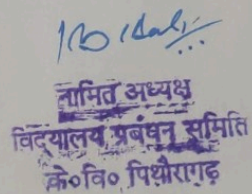 नामित अध्यक्ष
विद्यालय प्रबंधन समिति
के०वि० पिथौरागढ़